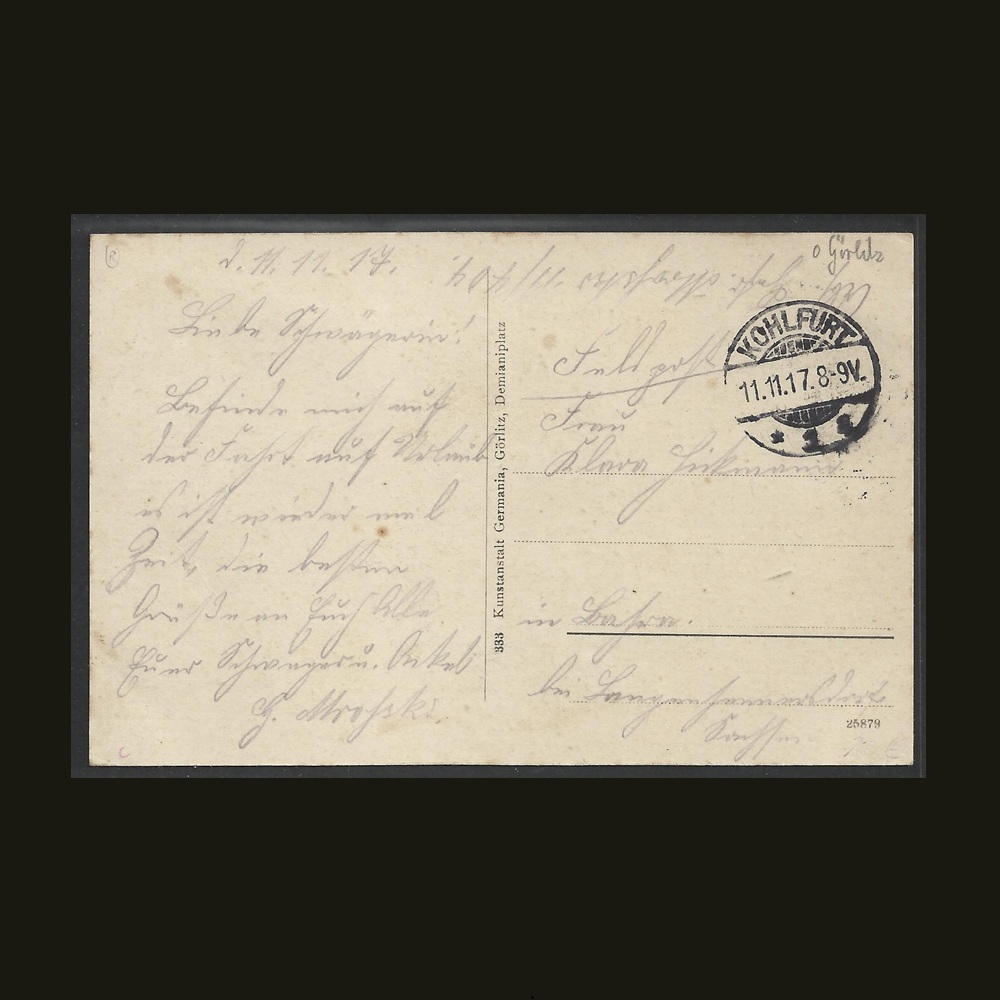 d. 11.11.17.
Liebe Schwägerin!
Befinde mich auf
der Fahrt auf Urlaub
es ist wieder mal
Zeit, die besten
Grüße an Euch Alle
Euer Schwager u. Onkel
333 Kunstanstalt Germania, Görlitz, Demianiplatz
Görlitz
KOHLFURT
11.11.17.8-9V.
Feldpost
Frau
Klara Hickmann
in Bahra.
bei Langenhennersdorf
Sachsen
25879